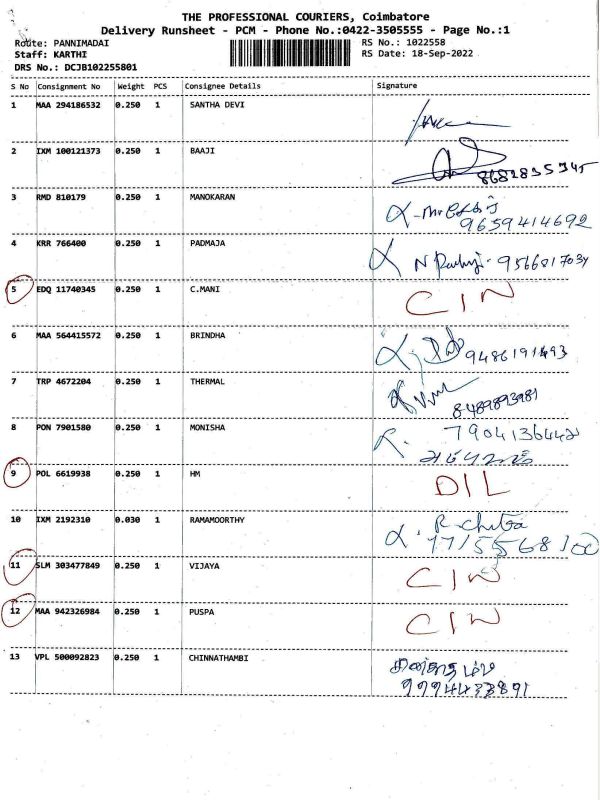 THE PROFESSIONAL COURIERS, Coimbatore
Delivery Runsheet - PCM - Phone No.:0422-3505555 - Page No.:1
Route: PANNIMADAI RS No.: 1022558
Staff: KARTHI RS Date: 18-Sep-2022
DRS No.: DCJB102255801
S No Consignment No Weight PCS Consignee Details Signature
1 MAA 294186532 0.250 1 SANTHA DEVI
2 IXM 100121373 0.250 1 BAAJI
3 RMD 810179 0.250 1 MANOKARAN
9659414692
4 KRR 766400 0.250 1 PADMAJA
5 EDQ 11740345 0.250 1 C.MANI CIN
6 MAA 564415572 0.250 1 BRINDHA
9486191493
7 TRP 4672204 0.250 1 THERMAL
8489893981
8 PON 7901580 0.250 1 MONISHA
9 POL 6619938 0.250 1 HM DIL
10 IXM 2192310 0.030 1 RAMAMOORTHY R-chitra
11 SLM 303477849 0.250 1 VIJAYA CIN
12 MAA 942326984 0.250 1 PUSPA CIN
13 VPL 500092823 0.250 1 CHINNATHAMBI
9994433891